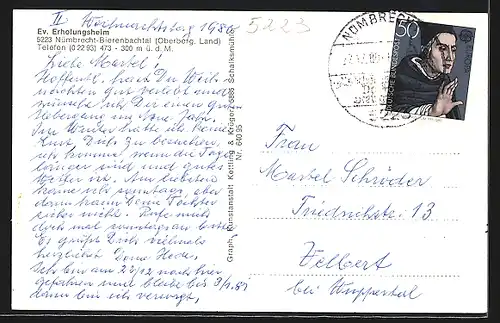 II Weihnachtstag 1980
5223
Ev. Erholungsheim
5223 Nümbrecht-Bierenbachtal (Oberberg. Land)
Telefon (0 22 93) 473 - 300 m ü. d. M.
Liebe Martel!
Hoffentl. hast Du Weih-
nachten gut verlebt und
wünsche ich Dir einen guten
Uebergang ins neue Jahr.
Im Winter hatte ich keine
Lust, Dich zu besuchen,
ich komme wenn die Tage
länger sind und gutes
Wetter ist. Am liebsten
käme ich sonntags, aber
dann kann Deine Tochter
sicher nicht. Rufe mich
doch mal an bitte.
Es grüßt Dich vielmals
herzlichst Deine Hede.
Ich bin am 23/12 nach hier
gefahren und bleibe bis 3/1.81
dann bin ich verreist,
Graph. Kunstanstalt Kettling & Krüger, 5885 Schalksmühle
Nr. 640 95
NÜMBRECHT
5223
50
DEUTSCHE BUNDESPOST
Frau
Martel Schröder
Friedrichstr. 13
Velbert
bei Wuppertal